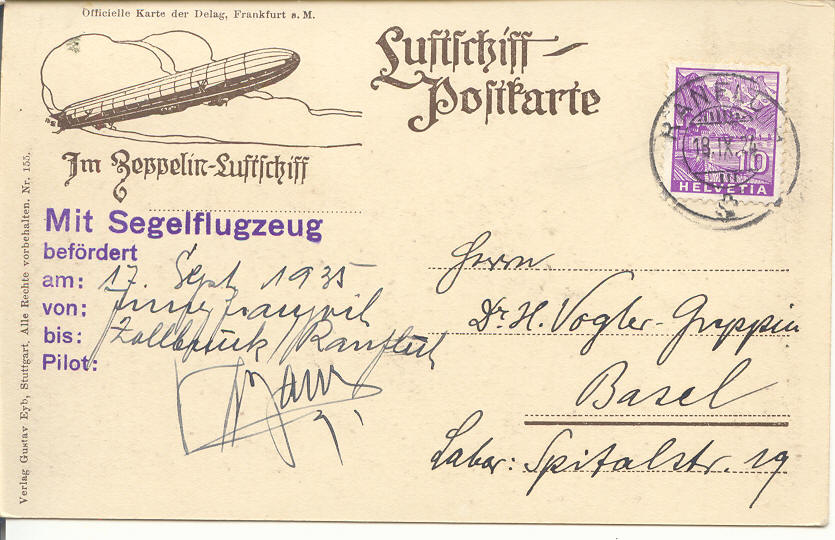 Officielle Karte der Delag, Frankfurt a. M.
Luftschiff-
Postkarte
Im Zeppelin-Luftschiff
Verlag Gustav Eyb, Stuttgart. Alle Rechte vorbehalten. Nr. 155.
10
HELVETIA
RANFLÜH
18.IX.
Mit Segelflugzeug
befördert
am: 17. Sept 1935
von:
bis: Zollbrück / Ranflüh
Pilot:
Herrn
Dr. H. Vogler-Greppin
Basel
Labor: Spitalstr. 19